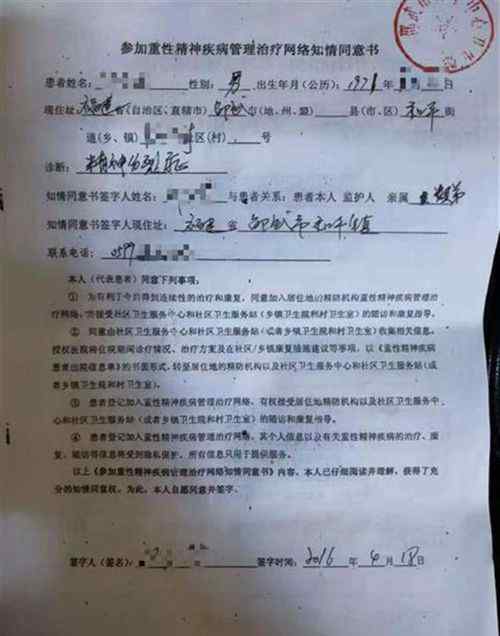 参加重性精神疾病管理治疗网络知情同意书
患者姓名: 性别: 男 出生年月(公历): 1971年 月 日
现住址 福建 省(自治区、直辖市) 邵武 市(地、州、盟) 县(市、区) 和平 街
道(乡、镇) 社区(村) 号
诊断: 精神分裂症
知情同意书签字人姓名: 与患者关系: 患者本人 监护人 亲属
知情同意书签字人现住址: 福建 省 邵武市和平镇
联系电话: 0599
本人(代表患者)同意下列事项:
① 为有利于今后得到连续性的治疗和康复,同意加入居住地的精防机构重性精神疾病管理治
疗网络,并接受社区卫生服务中心和社区卫生服务站(乡镇卫生院和村卫生室)的随访和康复指导。
② 同意由社区卫生服务中心和社区卫生服务站(或者乡镇卫生院和村卫生室)收集相关信息,
授权医院将住院期间诊疗情况、治疗方案及在社区/乡镇康复措施建议等事项,以《重性精神疾病
患者出院信息单》的书面形式,转至居住地的精防机构以及社区卫生服务中心和社区卫生服务站(或
者乡镇卫生院和村卫生室)。
③ 患者登记加入重性精神疾病管理治疗网络,有权接受居住地精防机构以及社区卫生服务中
心和社区卫生服务站(或者乡镇卫生院和村卫生室)的随访和康复指导。
④ 患者登记加入重性精神疾病管理治疗网络,其个人信息以及有关重性精神疾病的治疗、康
复、随访等信息将受到隐私保护。所有信息只用于提供服务。
以上《参加重性精神疾病管理治疗网络知情同意书》内容,本人已仔细阅读并理解,获得了充
分的知情同意权。为此,本人自愿同意并签字。
签字人(签名): 年 签字时间: 2016 年 4 月 18 日